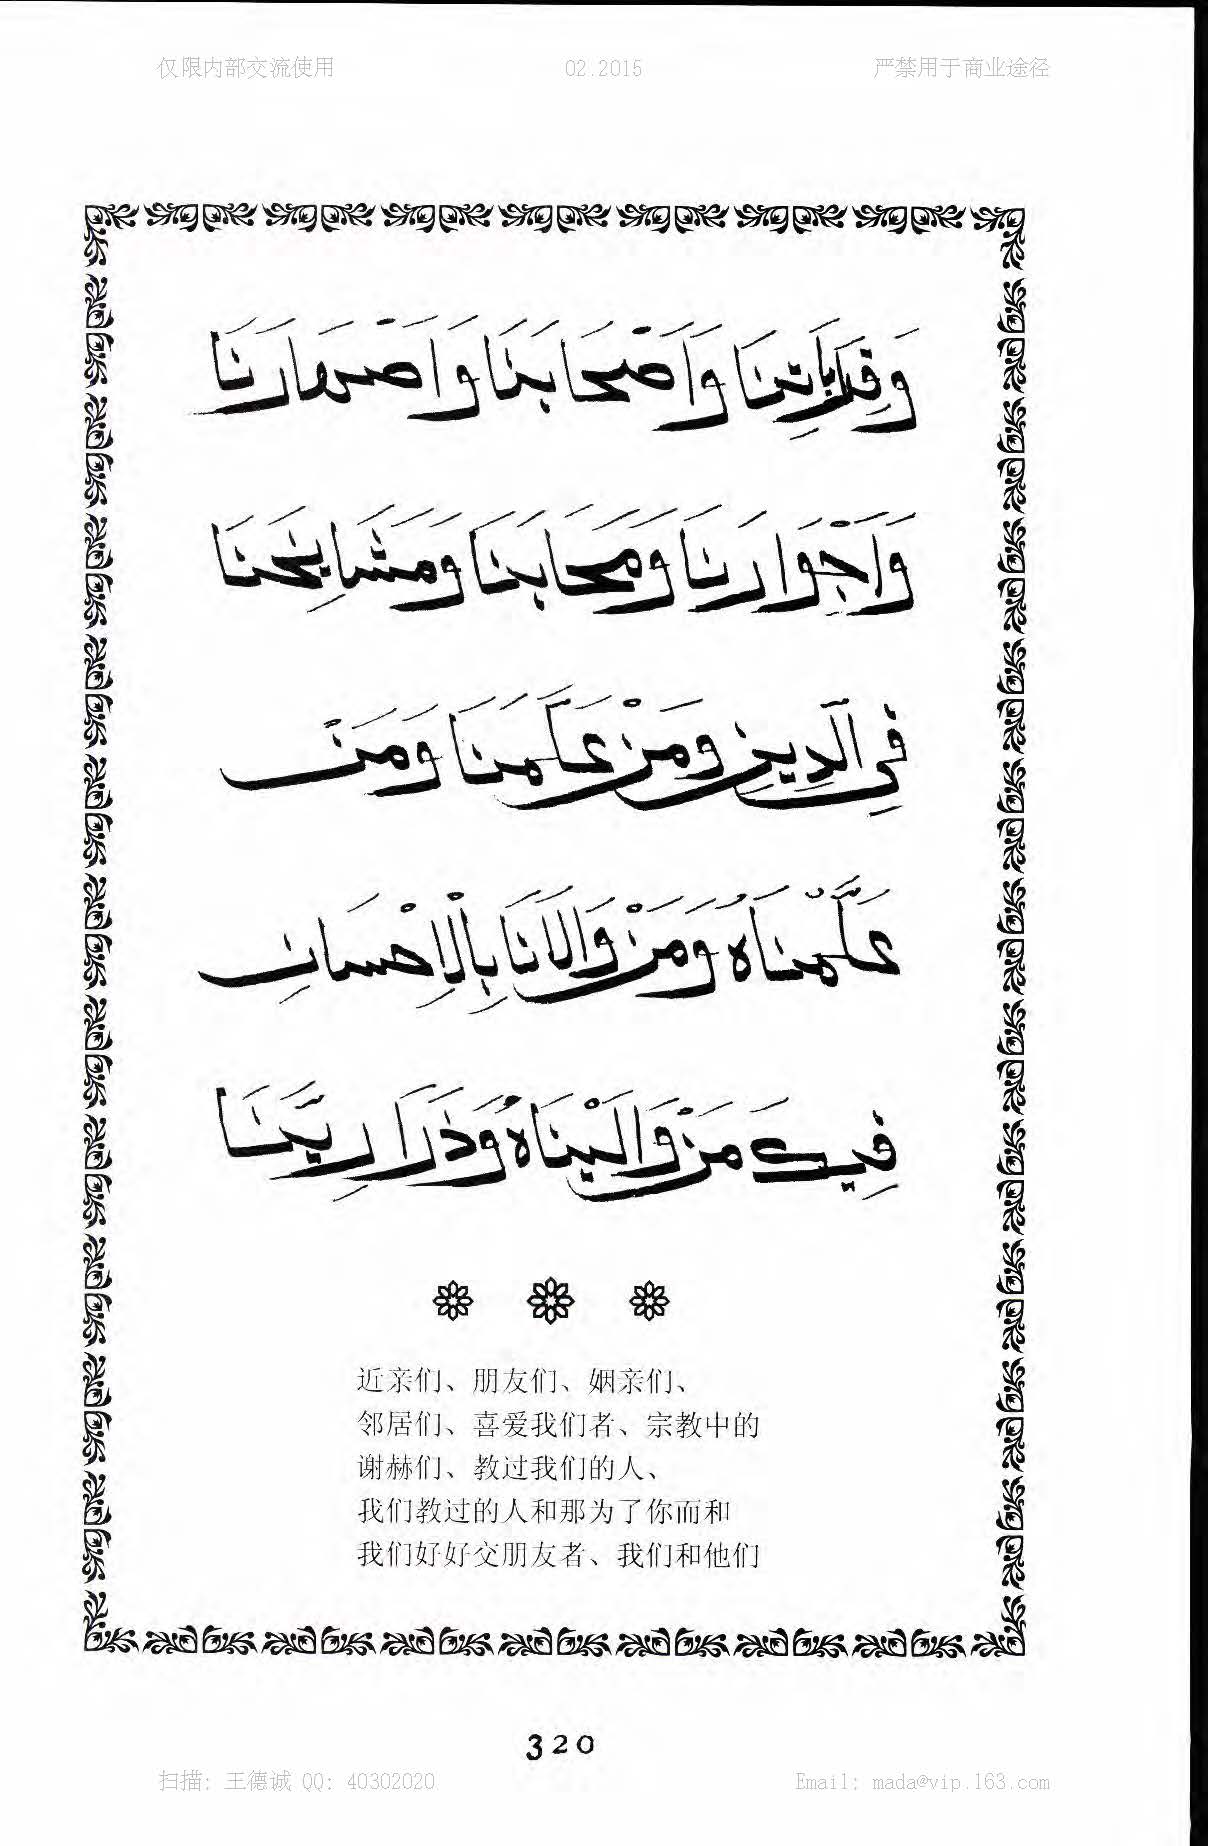 仅限内部交流使用 02.2015 严禁用于商业途径
وَقِرَابَاتِنَا وَاَصْحَابَنَا وَاَصْهَارَنَا
وَاَجْوَارَنَا وَمَحَابَنَا وَمَشَايِخَنَا
فِي الدِّينِ وَمَنْ عَلَّمَنَا وَمَنْ
عَلَّمْنَاهُ وَمَنْ وَالَانَا بِالْاِحْسَانِ
فِيكَ مَنْ وَالَيْنَاهُ وَذَرَارِيَّنَا
近亲们、朋友们、姻亲们、
邻居们、喜爱我们者、宗教中的
谢赫们、教过我们的人、
我们教过的人和那为了你而和
我们好好交朋友者、我们和他们
320
扫描: 王德诚 QQ: 40302020 Email: mada@vip.163.com